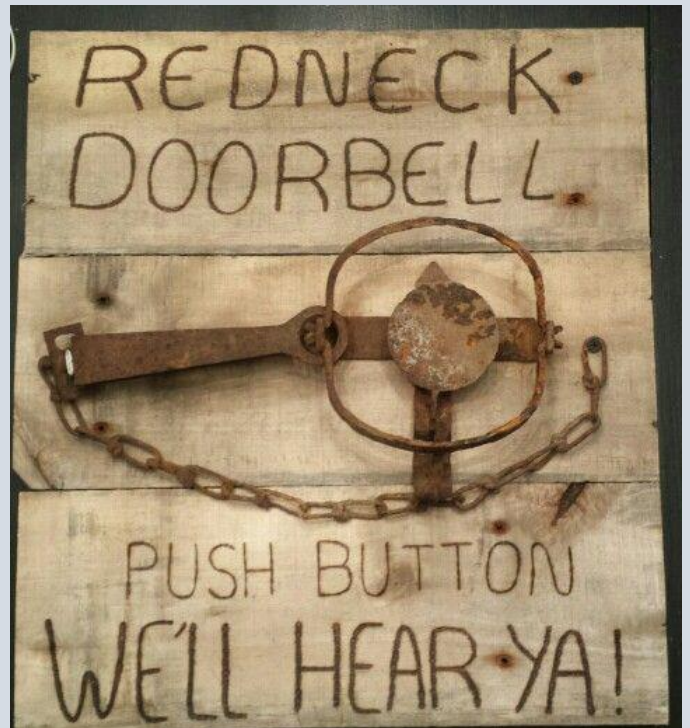 REDNECK
DOORBELL
PUSH BUTTON
WE'LL HEAR YA!